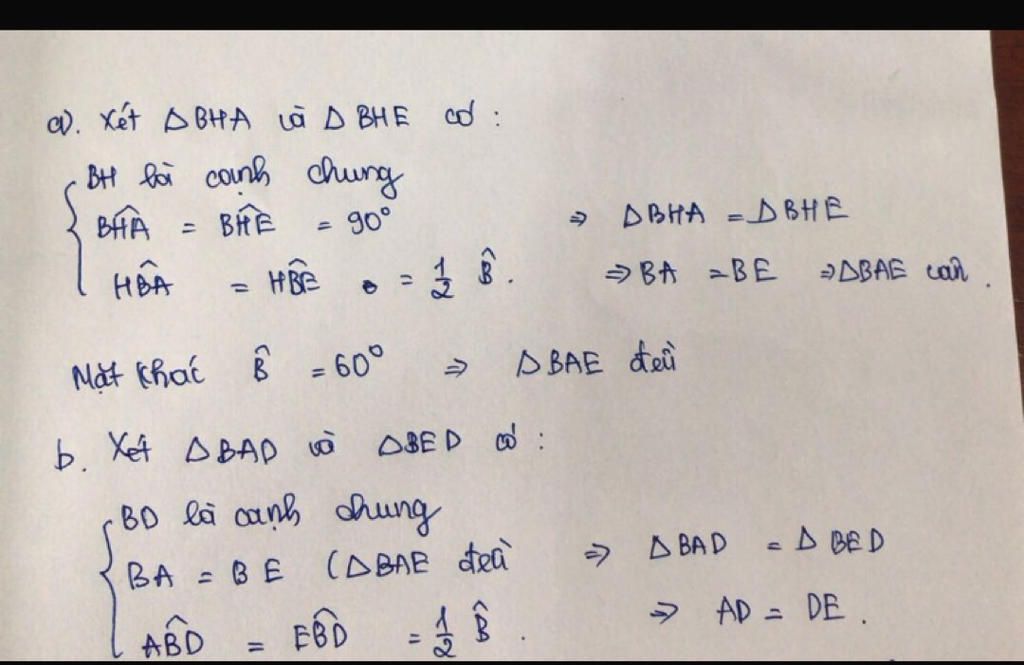 a). Xét ΔBHA và ΔBHE có :
BH là cạnh chung
BĤA = BĤE = 90° ⇒ ΔBHA = ΔBHE
HB̂A = HB̂E = 1/2 B̂. ⇒ BA = BE ⇒ ΔBAE cân.
Mặt khác B̂ = 60° ⇒ ΔBAE đều
b. Xét ΔBAD và ΔBED có :
BD là cạnh chung
BA = BE (ΔBAE đều ⇒ ΔBAD = ΔBED
AB̂D = EB̂D = 1/2 B̂. ⇒ AD = DE.